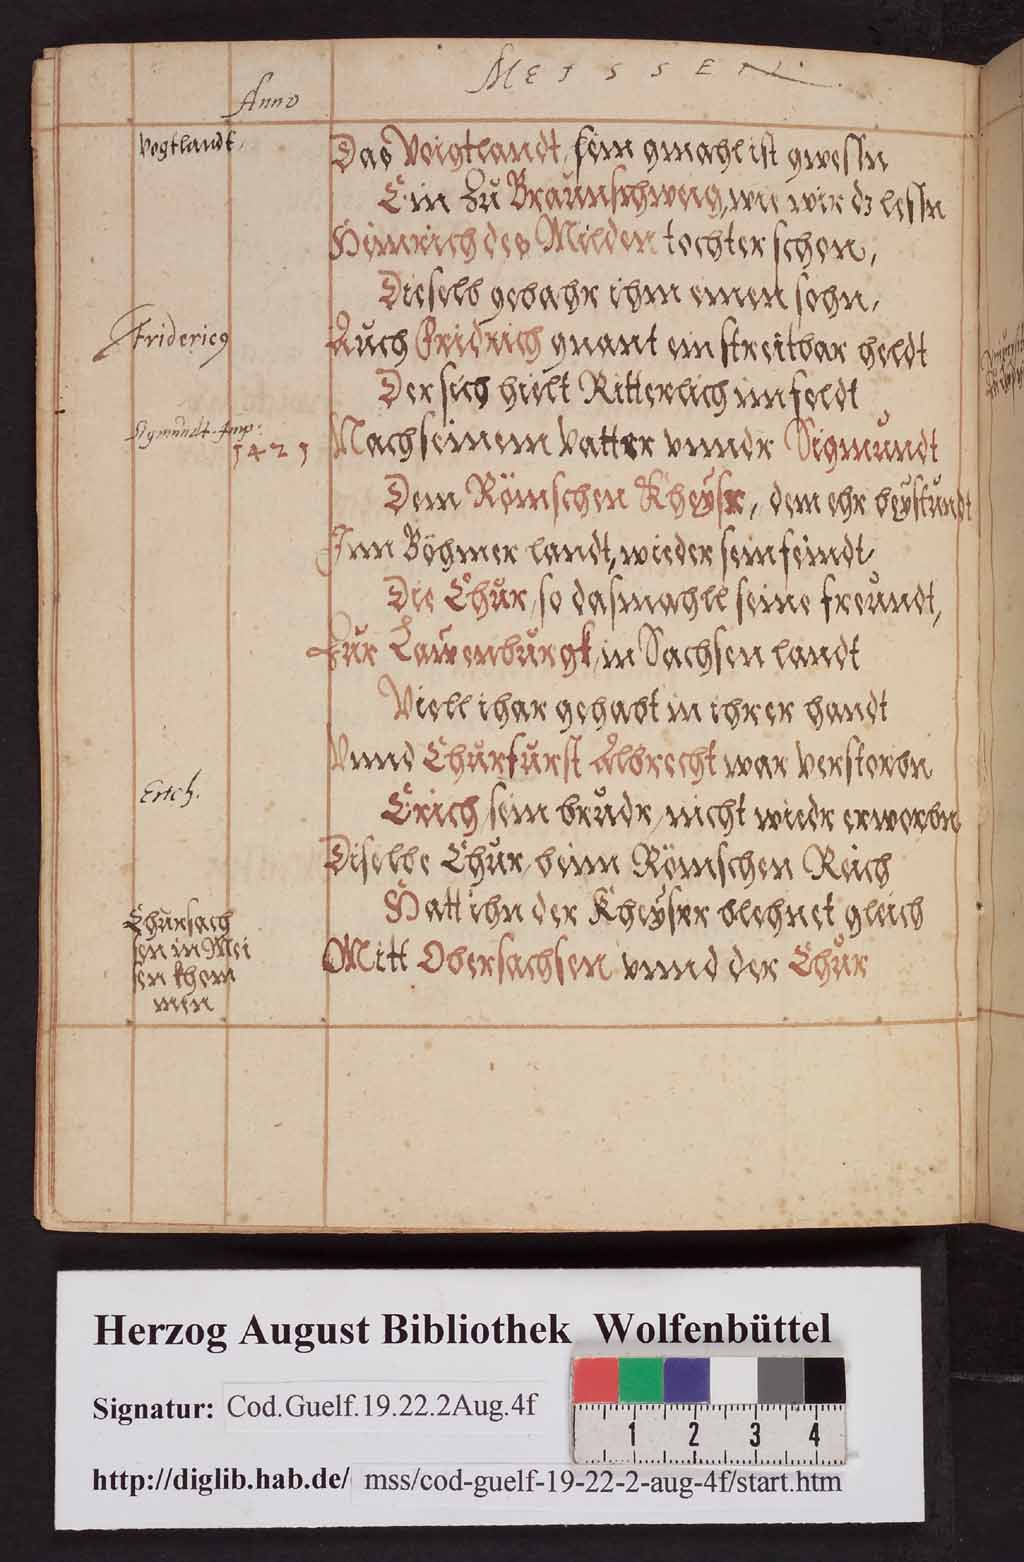 MEISSEN.
Anno
Vogtlandt,
Das Voigtlandt, sein gmahl ist gwessn
Ein zu Braunschweig, wie wir dz lessn
Heinrich des Milden tochter schon,
Dieselb gebahr ihm einen sohn,
Fridericq
Auch Fridrich gnant ein streitbar heldt
Der sich hielt Ritterlich im feldt
Sigmundt. Imp:
1421
Nach seinem Vatter vnndr Sigmundt
Dem Römschen Kheysr, dem ehr beystundt
Inn Böhmer landt, wieder sein feindt,
Die Chur, so dasmahll seine freundt,
Zur Lawenburgk, in Sachsen landt
Viell ihar gehabt in ihrer handt
Vnnd Churfurst Albrecht war verstorbn
Erich.
Erich sein brudr, nicht wiedr erworbn
Diselbe Chur, beim Römschen Reich
Hatt ihn der Kheyser blehnet gleich
Chursach
sen in Mei
sen khom
men
Mitt Obersachsen vnnd der Chur
Herzog August Bibliothek Wolfenbüttel
Signatur: Cod.Guelf.19.22.2Aug.4f
1 2 3 4
http://diglib.hab.de/ mss/cod-guelf-19-22-2-aug-4f/start.htm